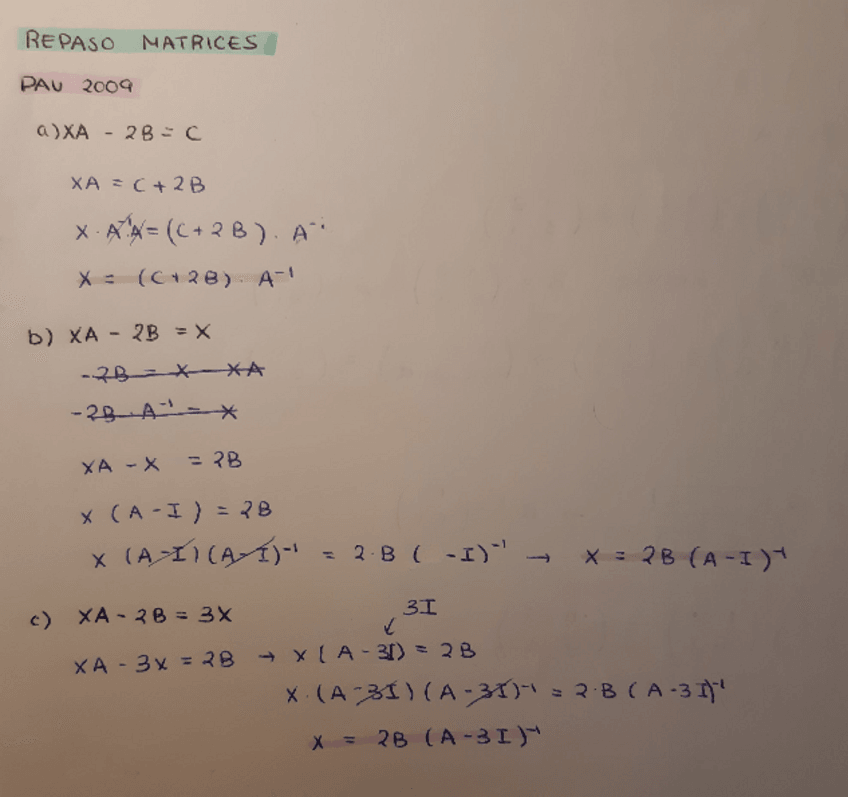 REPASO MATRICES
PAU 2009
a) XA - 2B = C
XA = C + 2B
X · A⁻¹A = (C + 2B) . A⁻¹
X = (C + 2B) · A⁻¹
b) XA - 2B = X
-2B = X - XA
-2B · A⁻¹ = X
XA - X = 2B
X (A - I) = 2B
X (A - I) (A - I)⁻¹ = 2 · B ( - I)⁻¹ → X = 2B (A - I)⁻¹
c) XA - 2B = 3X
3I
↙
XA - 3X = 2B → X (A - 3I) = 2B
X · (A - 3I) (A - 3I)⁻¹ = 2 · B (A - 3I)⁻¹
X = 2B (A - 3I)⁻¹